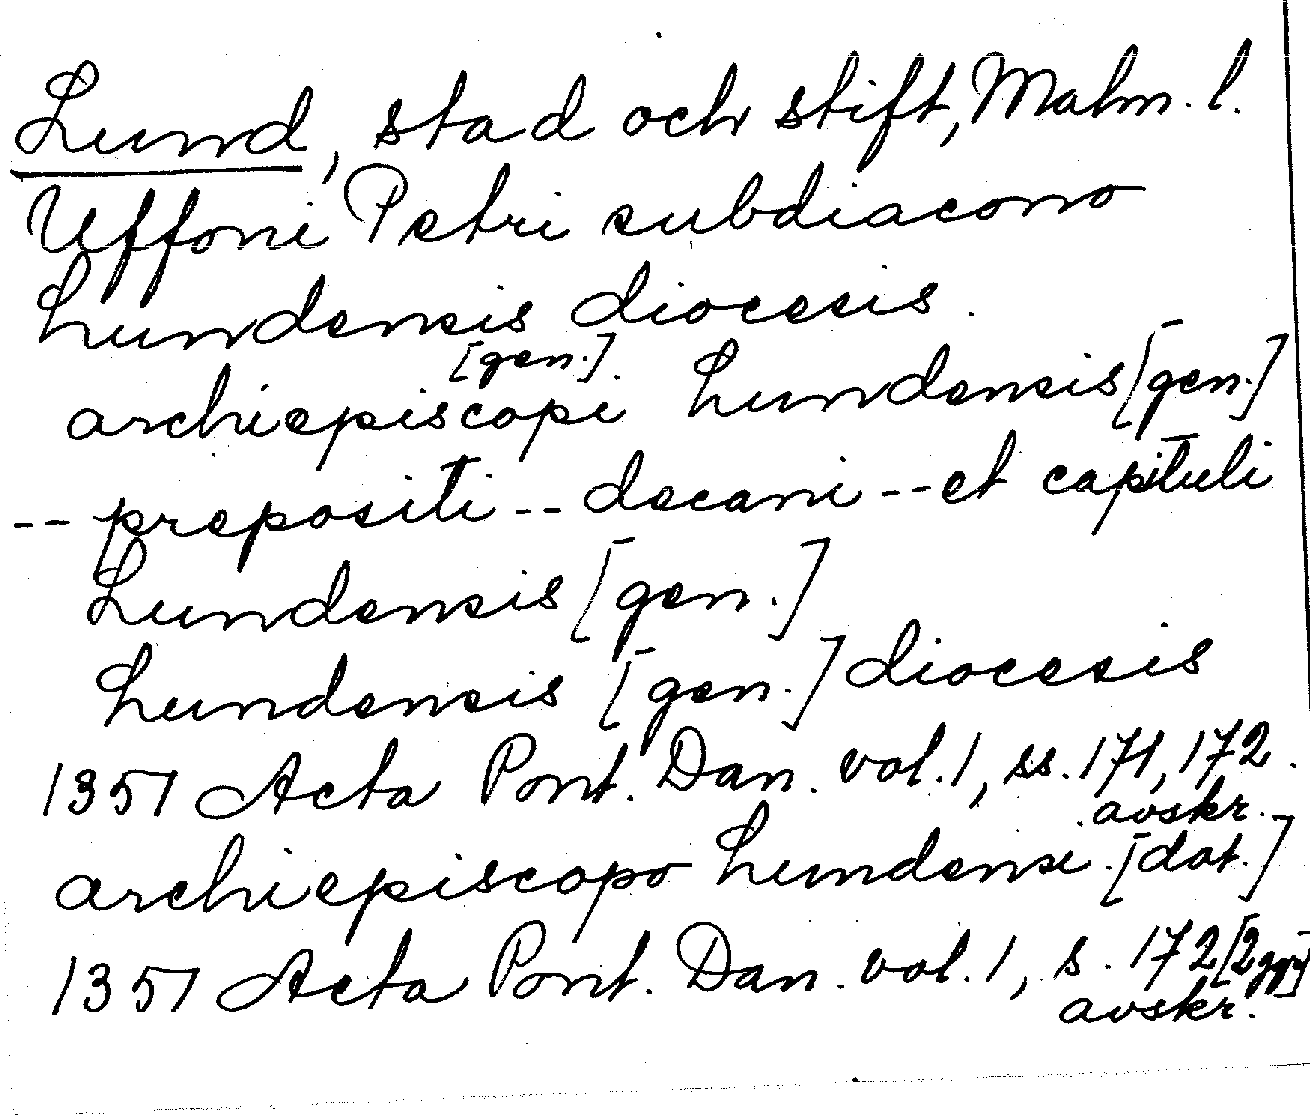 Lund, stad och stift, Malm. l.
Uffoni Petri subdiacono
Lundensis diocesis.
[gen.]
archiepiscopi Lundensis [gen.]
-- prepositi -- decani -- et capituli
Lundensis [gen.]
Lundensis [gen.] diocesis
1351 Acta Pont. Dan. vol. 1, ss. 171, 172.
avskr.
archiepiscopo Lundensi [dat.]
1351 Acta Pont. Dan. vol. 1, s. 172 [2 ggr]
avskr.